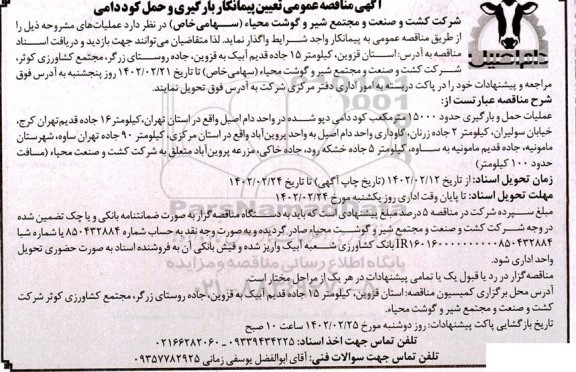 آگهی مناقصه عمومی تعیین پیمانکار بارگیری و حمل کود دامی
شرکت کشت و صنعت و مجتمع شیر و گوشت محیاء (سهامی خاص) در نظر دارد عملیات‌های مشروحه ذیل را
از طریق مناقصه عمومی به پیمانکار واجد شرایط واگذار نماید. لذا متقاضیان می‌توانند جهت بازدید و دریافت اسناد
مناقصه به آدرس: استان قزوین، کیلومتر ۱۵ جاده قدیم آبیک به قزوین، جاده روستای زرگر، مجتمع کشاورزی کوثر،
شرکت کشت و صنعت و مجتمع شیر و گوشت محیاء (سهامی خاص) تا تاریخ ۱۴۰۲/۰۲/۲۱ روز پنجشنبه به آدرس فوق
مراجعه و پیشنهادات خود را در پاکت دربسته به امور اداری دفتر مرکزی شرکت به آدرس فوق تحویل نمایند.
شرح مناقصه عبارتست از:
عملیات حمل و بارگیری حدود ۱۵۰۰۰ مترمکعب کود دامی دپو شده در واحد دام اصیل واقع در استان تهران، کیلومتر ۱۶ جاده قدیم تهران کرج،
خیابان سولیران، کیلومتر ۲ جاده زرنان، گاوداری واحد دام اصیل به واحد پروین‌آباد واقع در استان مرکزی، کیلومتر ۹۰ جاده تهران ساوه، شهرستان
مامونیه، جاده قدیم مامونیه به ساوه، کیلومتر ۵ جاده خشکه رود، جاده خاکی، مزرعه پروین‌آباد متعلق به شرکت کشت و صنعت محیاء (مسافت
حدود ۱۰۰ کیلومتر)
زمان تحویل اسناد: از تاریخ ۱۴۰۲/۰۲/۱۲ (تاریخ چاپ آگهی) تا تاریخ ۱۴۰۲/۰۲/۲۴
مهلت تحویل اسناد: تا پایان وقت اداری روز یکشنبه مورخ ۱۴۰۲/۰۲/۲۴
مبلغ سپرده شرکت در مناقصه ۵ درصد مبلغ پیشنهادی است که باید به دستگاه مناقصه گزار به صورت ضمانتنامه بانکی و یا چک تضمین شده
در وجه شرکت کشت و صنعت و مجتمع شیر و گوشت محیاء صادر گردیده و به صورت وجه نقد به حساب شماره ۸۵۰۴۳۲۸۸۴ یا شماره شبا
IR۱۶۰۱۶۰۰۰۰۰۰۰۰۰۰۸۵۰۴۳۲۸۸۴ بانک کشاورزی شعبه آبیک واریز شده و فیش بانکی آن به فروشنده اسناد به صورت حضوری تحویل
واحد اداری شود.
مناقصه گزار در رد یا قبول یک یا تمامی پیشنهادات در هر یک از مراحل مختار است.
آدرس محل برگزاری کمیسیون مناقصه: استان قزوین، کیلومتر ۱۵ جاده قدیم آبیک به قزوین، جاده روستای زرگر، مجتمع کشاورزی کوثر شرکت
کشت و صنعت و مجتمع شیر و گوشت محیاء.
تاریخ بازگشایی پاکت پیشنهادات: روز دوشنبه مورخ ۱۴۰۲/۰۲/۲۵ ساعت ۱۰ صبح
تلفن تماس جهت اخذ اسناد: ۰۹۳۳۹۴۳۴۲۲۵ - ۰۲۱۶۶۲۸۲۰۶۰
تلفن تماس جهت سوالات فنی: آقای ابوالفضل یوسفی زمانی ۰۹۳۵۷۷۸۲۹۲۵
دام اصیل